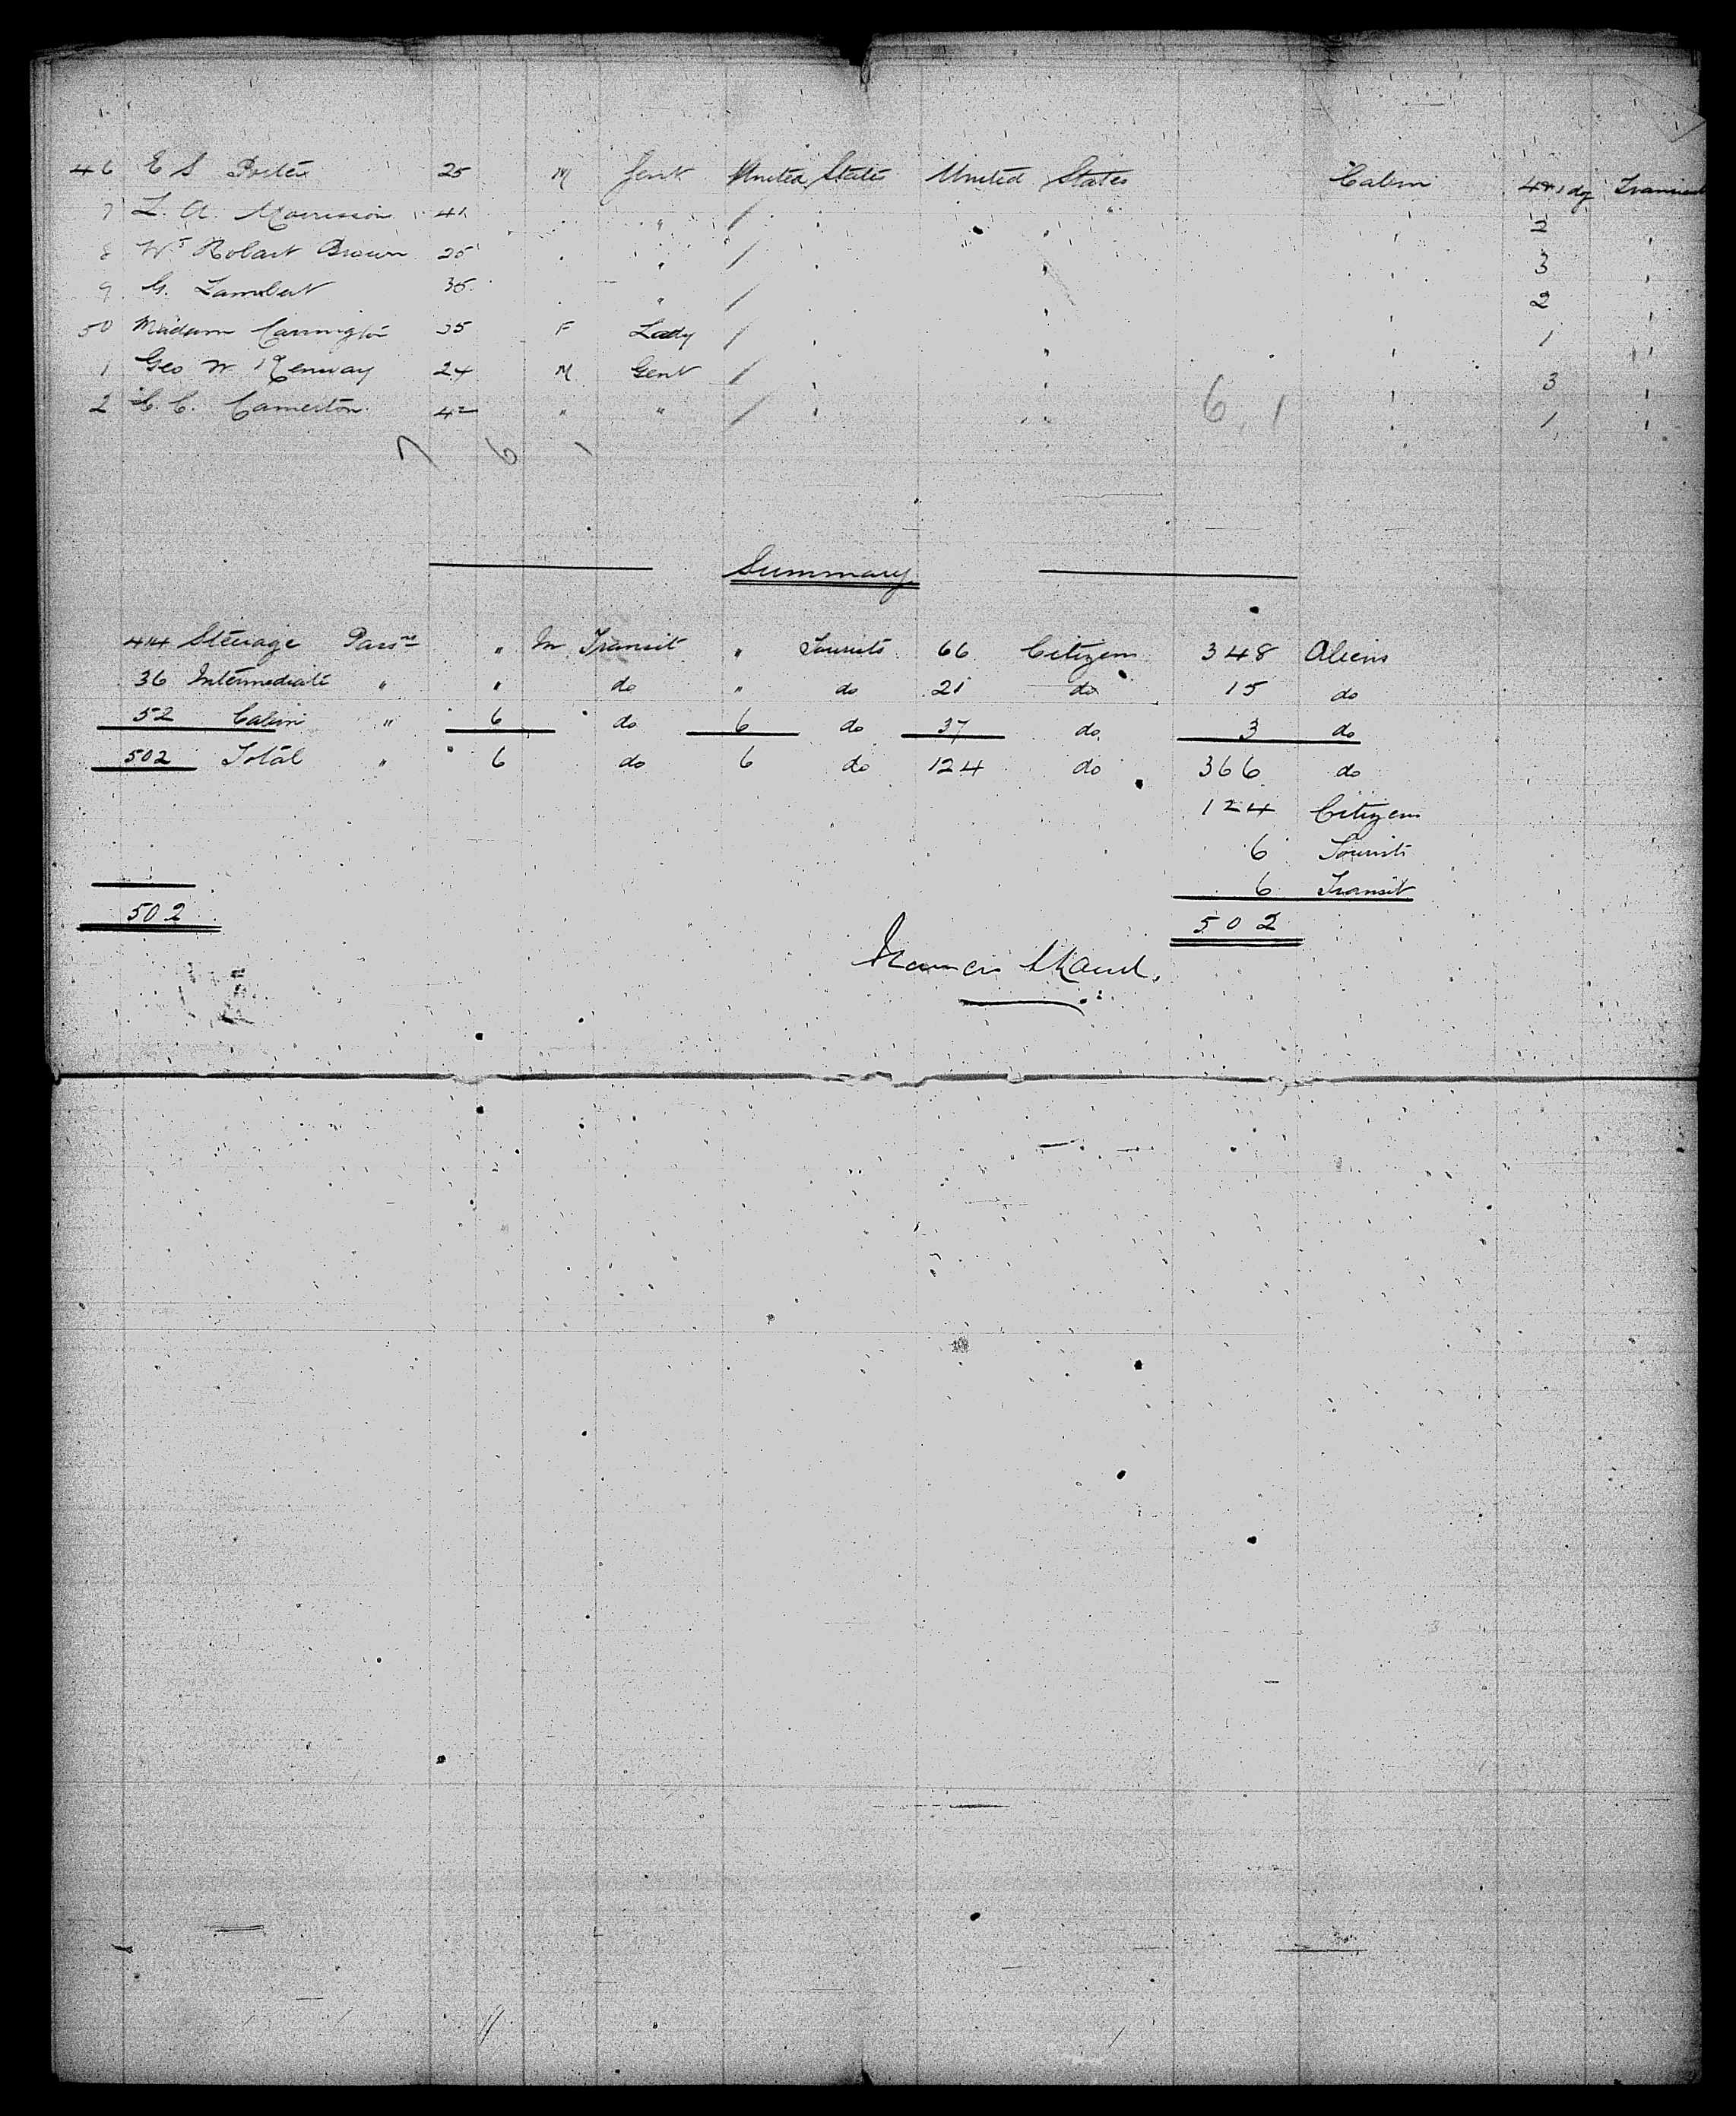 46 E S Porter 25 M Gent United States United States Cabin 4 Transient
7 L. A. Morrison 41 " / " 2 "
8 Wm Robart Brown 25 " / " 3 "
9 G. Lambert 35 " / " 2 "
50 Madam Carrington 35 F Lady / " 1 "
1 Geo W Kenway 24 M Gent / " 3 "
2 C. C. Camerton 42 " " / " 6 1 1 "
7 6 1
Summary
414 Steerage Passrs " In Transit " Tourists 66 Citizens 348 Aliens
36 Intermediate " " do " do 21 do 15 do
52 Cabin " 6 do 6 do 37 do 3 do
502 Total " 6 do 6 do 124 do 366 do
124 Citizens
6 Tourists
6 Transit
502 502